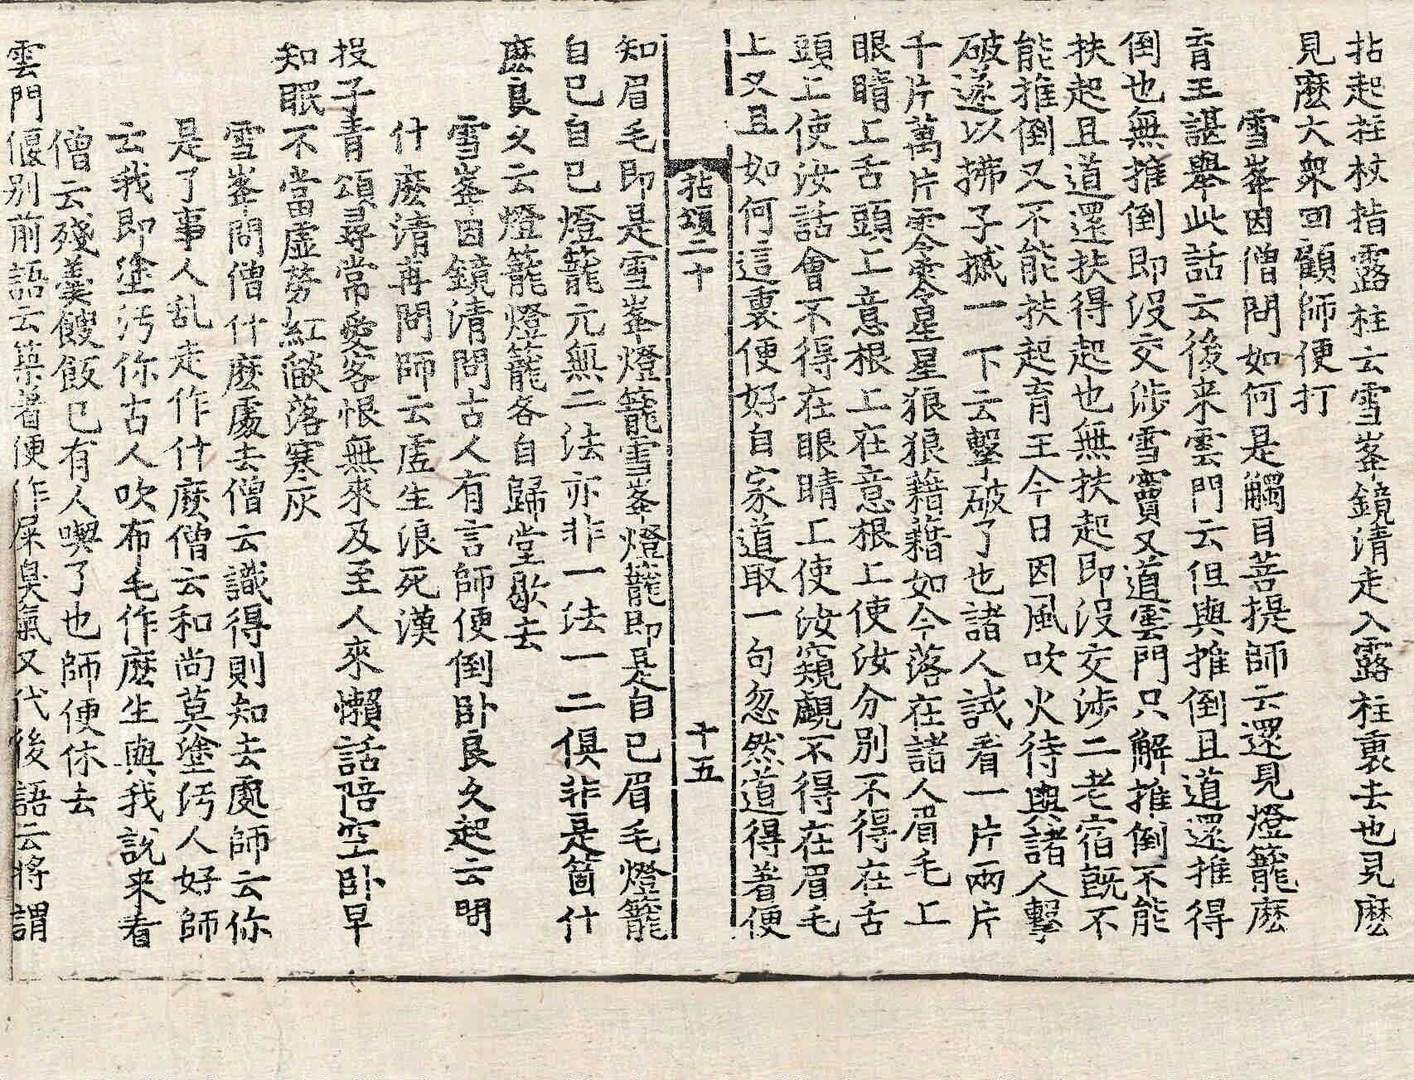 拈起拄杖指露柱云雪峯鏡清走入露柱裏去也見麽
見麽大衆回顧師便打
雪峯因僧問如何是觸目菩提師云還見燈籠麽
育王諶舉此話云後来雲門云但與推倒且道還推得
倒也無推倒即没交涉雪竇又道雲門只解推倒不能
扶起且道還扶得起也無扶起即没交涉二老宿旣不
能推倒又不能扶起育王今日因風吹火待與諸人擊
破遂以拂子撼一下云擊破了也諸人試看一片兩片
千片萬片零零星星狼狼藉藉如今落在諸人眉毛上
眼睛上舌頭上意根上在意根上使汝分别不得在舌
頭上使汝話會不得在眼睛上使汝窺覷不得在眉毛
上又且如何這裏便好自家道取一句忽然道得著便
拈頌二十 十五
知眉毛即是雪峯燈籠雪峯燈籠即是自己眉毛燈籠
自己自己燈籠元無二法亦非一法一二俱非是箇什
麽良久云燈籠燈籠各自歸堂歇去
雪峯因鏡清問古人有言師便倒卧良久起云問
什麽清再問師云虗生浪死漢
投子青頌尋常愛客恨無來及至人來懶話陪空卧早
知眠不當虚勞紅燄落寒灰
雪峯問僧什麽處去僧云識得則知去處師云你
是了事人乱走作什麽僧云和尚莫塗汚人好師
云我即塗汚你古人吹布毛作麽生與我説来看
僧云殘羹餿飯已有人喫了也師便休去
雲門偃别前語云築著便作屎臭氣又代後語云將謂